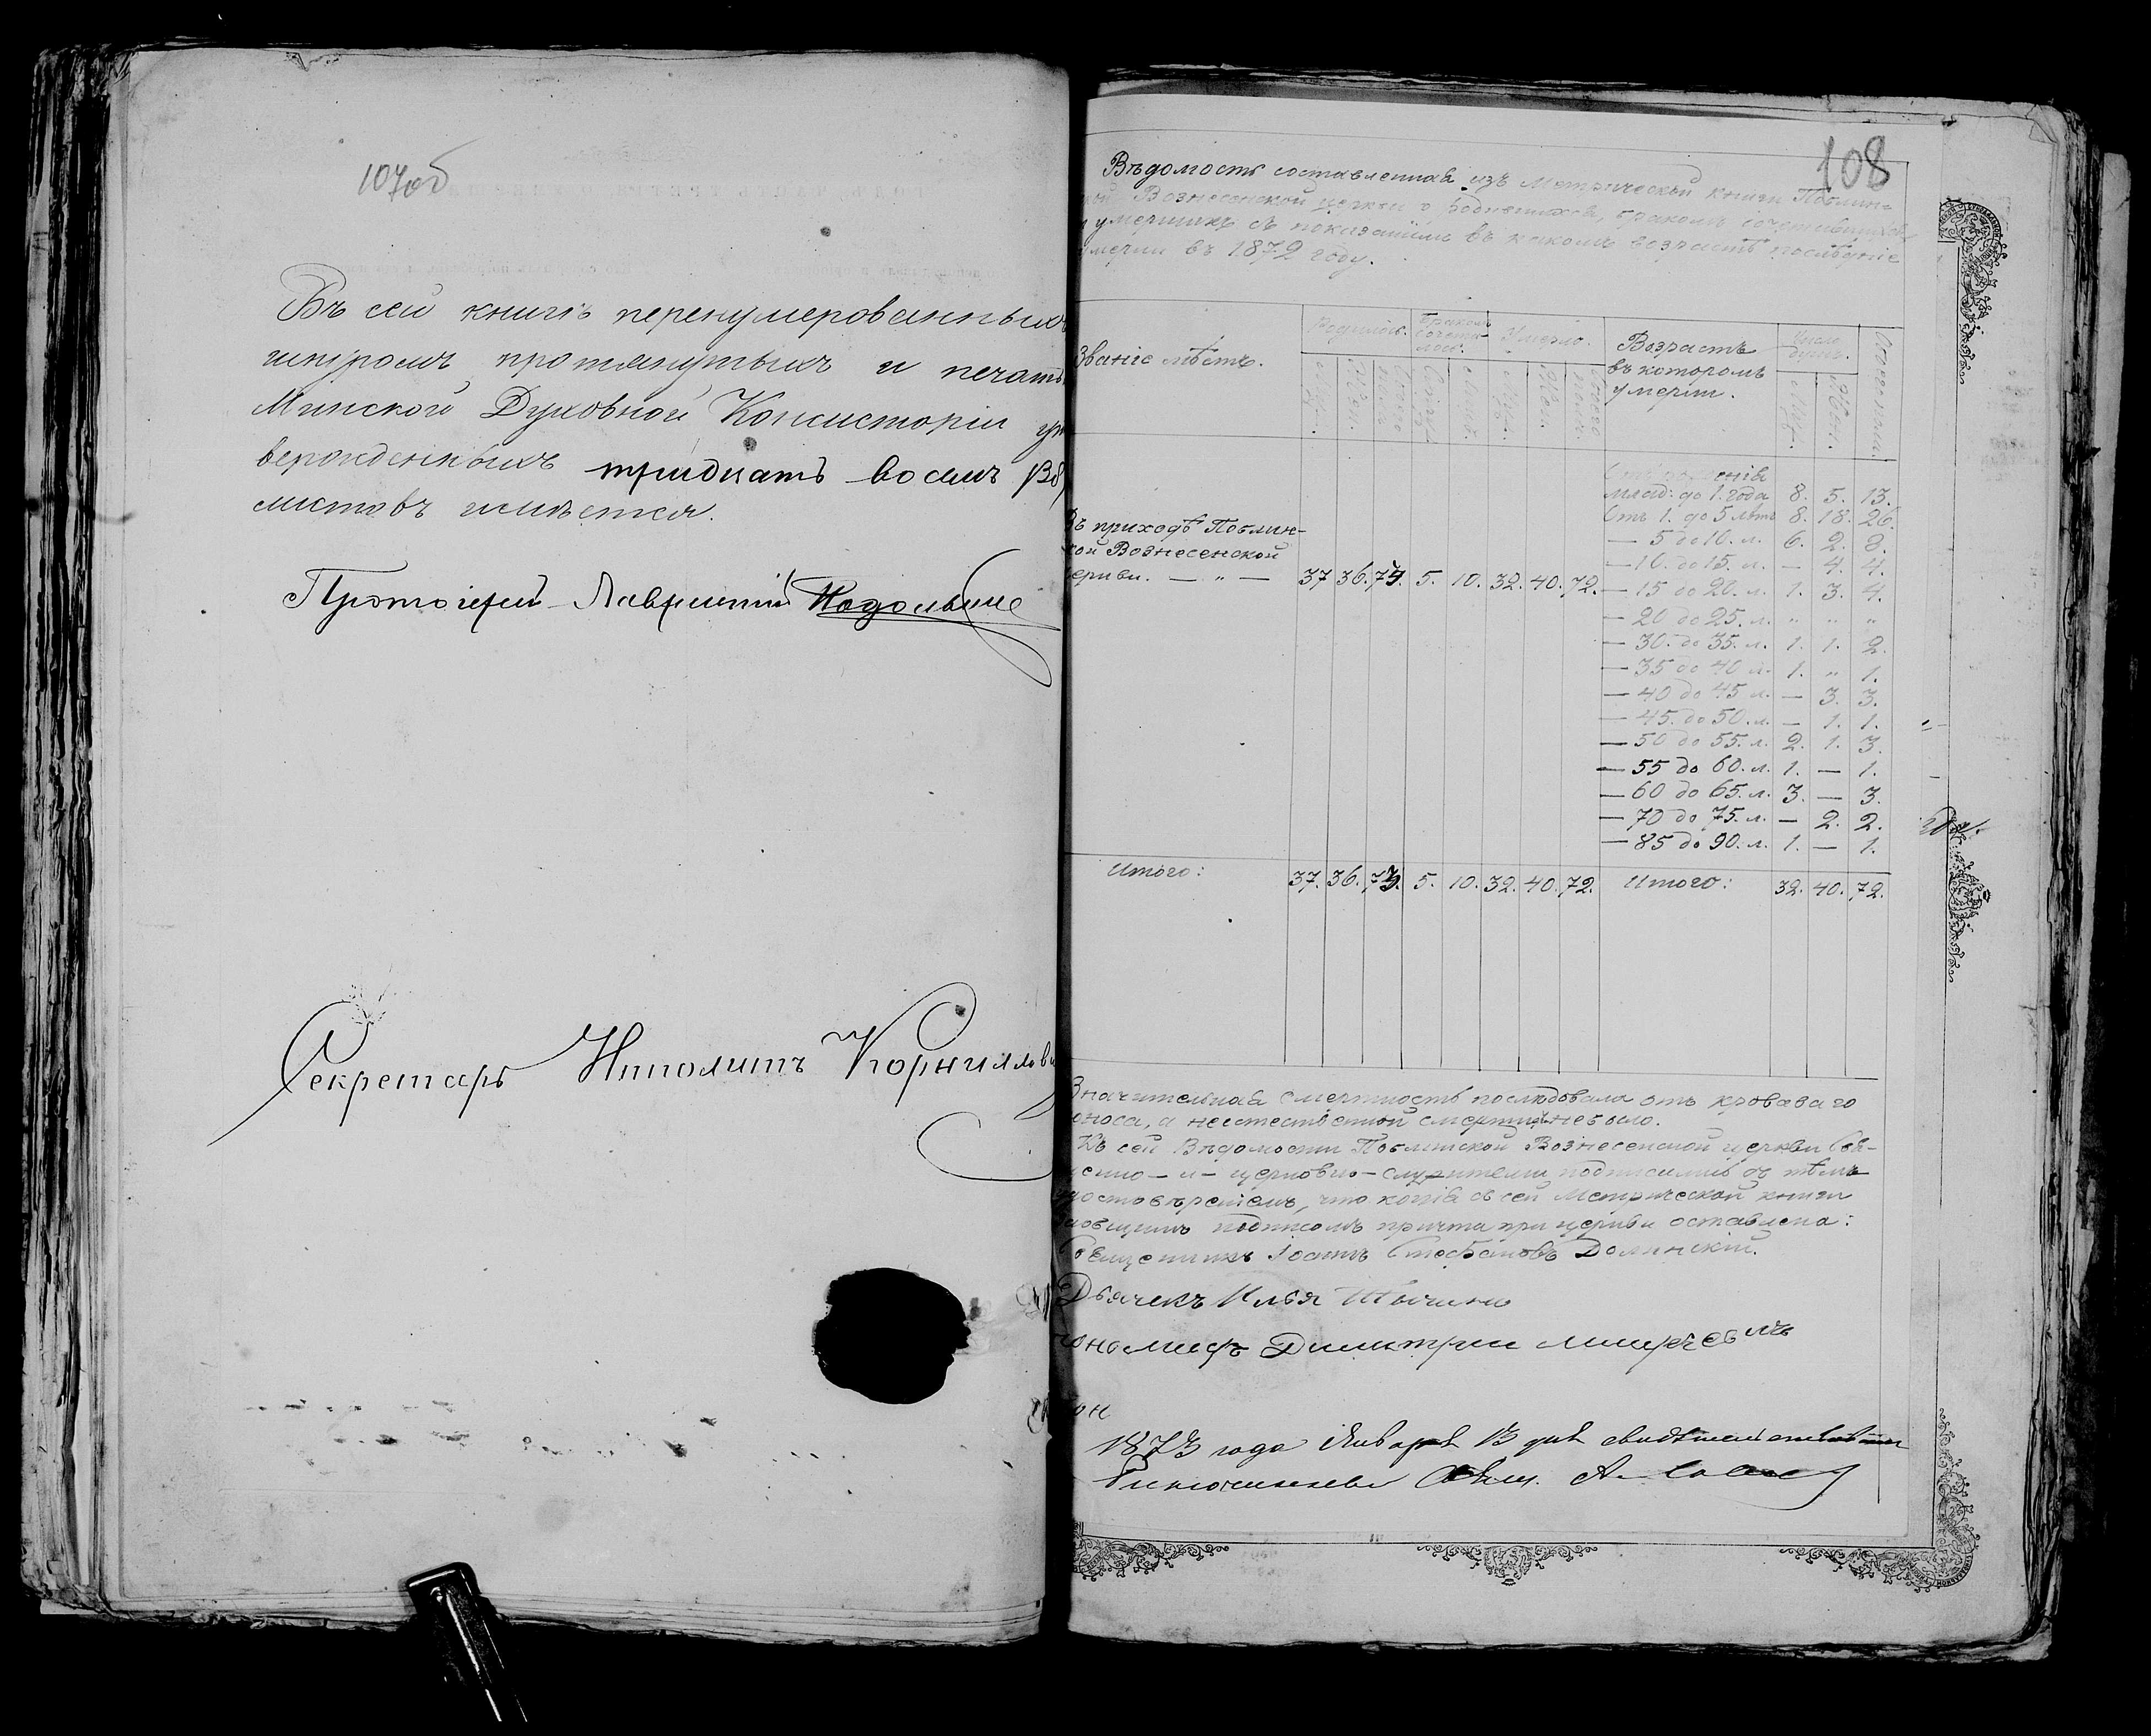 107об
Въ сей книгѣ перенумерованныхъ
шнуромъ протянутыхъ и печатью
Минской Духовной Консисторіи ут
вержденныхъ тридцать восемь /38/
листовъ имѣется.
Протоіерей Лаврентій
Секретарь Ипполитъ Корнилови
108
Вѣдомость составленная изъ Метрической книги Поблин=
Вознесенской церкви о родившихся, бракомъ сочетавшихся
умершихъ съ показаніемъ въ какомъ возрастѣ послѣдніе
умерли въ 1872 году.
Званіе мѣстъ. Родилось. Бракомъ сочеталось. Умерло. Возрастъ въ которомъ умерли. Число душъ.
млад: до 1. года 8. 5. 13.
Отъ 1. до 5 лѣтъ 8. 18. 26.
— 5 до 10. л. 6. 2. 8.
— 10. до 15. л. — 4. 4.
Въ приходѣ Поблин-
ской Вознесенской
церкви. — „ — 37 36. 73. 5. 10. 32. 40. 72.
— 15 до 20. л. 1. 3. 4.
— 20 до 25. л. „ „ „
— 30. до 35. л. 1. 1. 2.
— 35 до 40 л. 1. „ 1.
— 40 до 45 л. — 3. 3.
— 45. до 50. л. — 1. 1.
— 50 до 55. л. 2. 1. 3.
— 55 до 60. л. 1. — 1.
— 60 до 65. л. 3. — 3.
— 70 до 75. л. — 2. 2.
— 85 до 90. л. 1. — 1.
Итого: 37. 36. 73. 5. 10. 32. 40. 72. Итого: 32. 40. 72.
Значительная смертность послѣдовала отъ кроваваго
поноса, а неестественной смерти не было.
Къ сей Вѣдомости Поблинской Вознесенской церкви Свя-
щенно-и-церковно-служители подписались съ тѣмъ
удостовѣреніемъ, что копія съ сей Метрической книги
подписомъ причта при церкви оставлена:
Священникъ Іоаннъ Стефановъ Долинскій.
Дьячекъ Илья
Пономарь Димитрій
1873 года Января 13 дня
Благочинный Свящ.